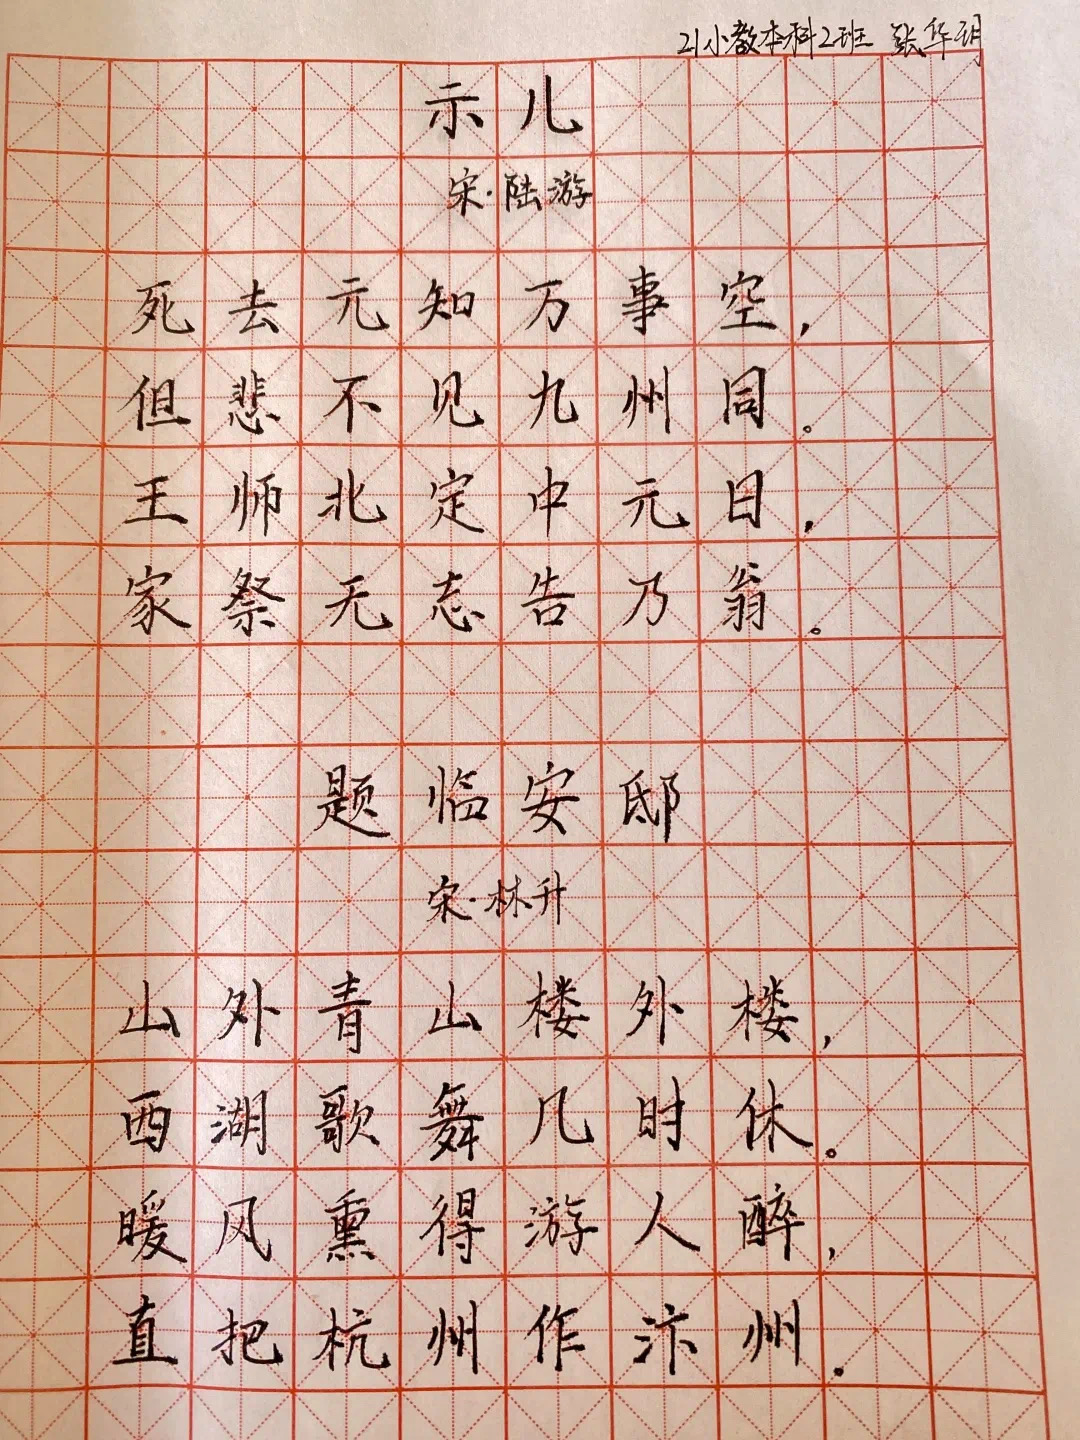 21小教本科2班 张华玥
示儿
宋·陆游
死去元知万事空，
但悲不见九州同。
王师北定中元日，
家祭无志告乃翁。
题临安邸
宋·林升
山外青山楼外楼，
西湖歌舞几时休。
暖风熏得游人醉，
直把杭州作汴州.